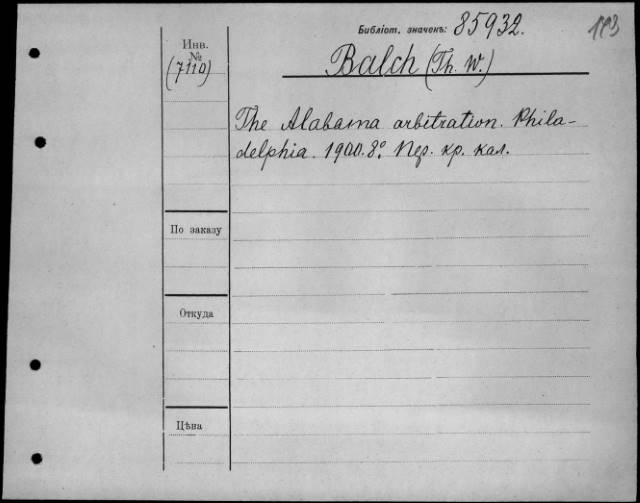 Библіот. значекъ: 85932.
Инв.
№
(7110)
Balch (Th. W.)
The Alabama arbitration. Phila-
delphia. 1900. 8º. Пер. кр. кал.
По заказу
Откуда
Цѣна